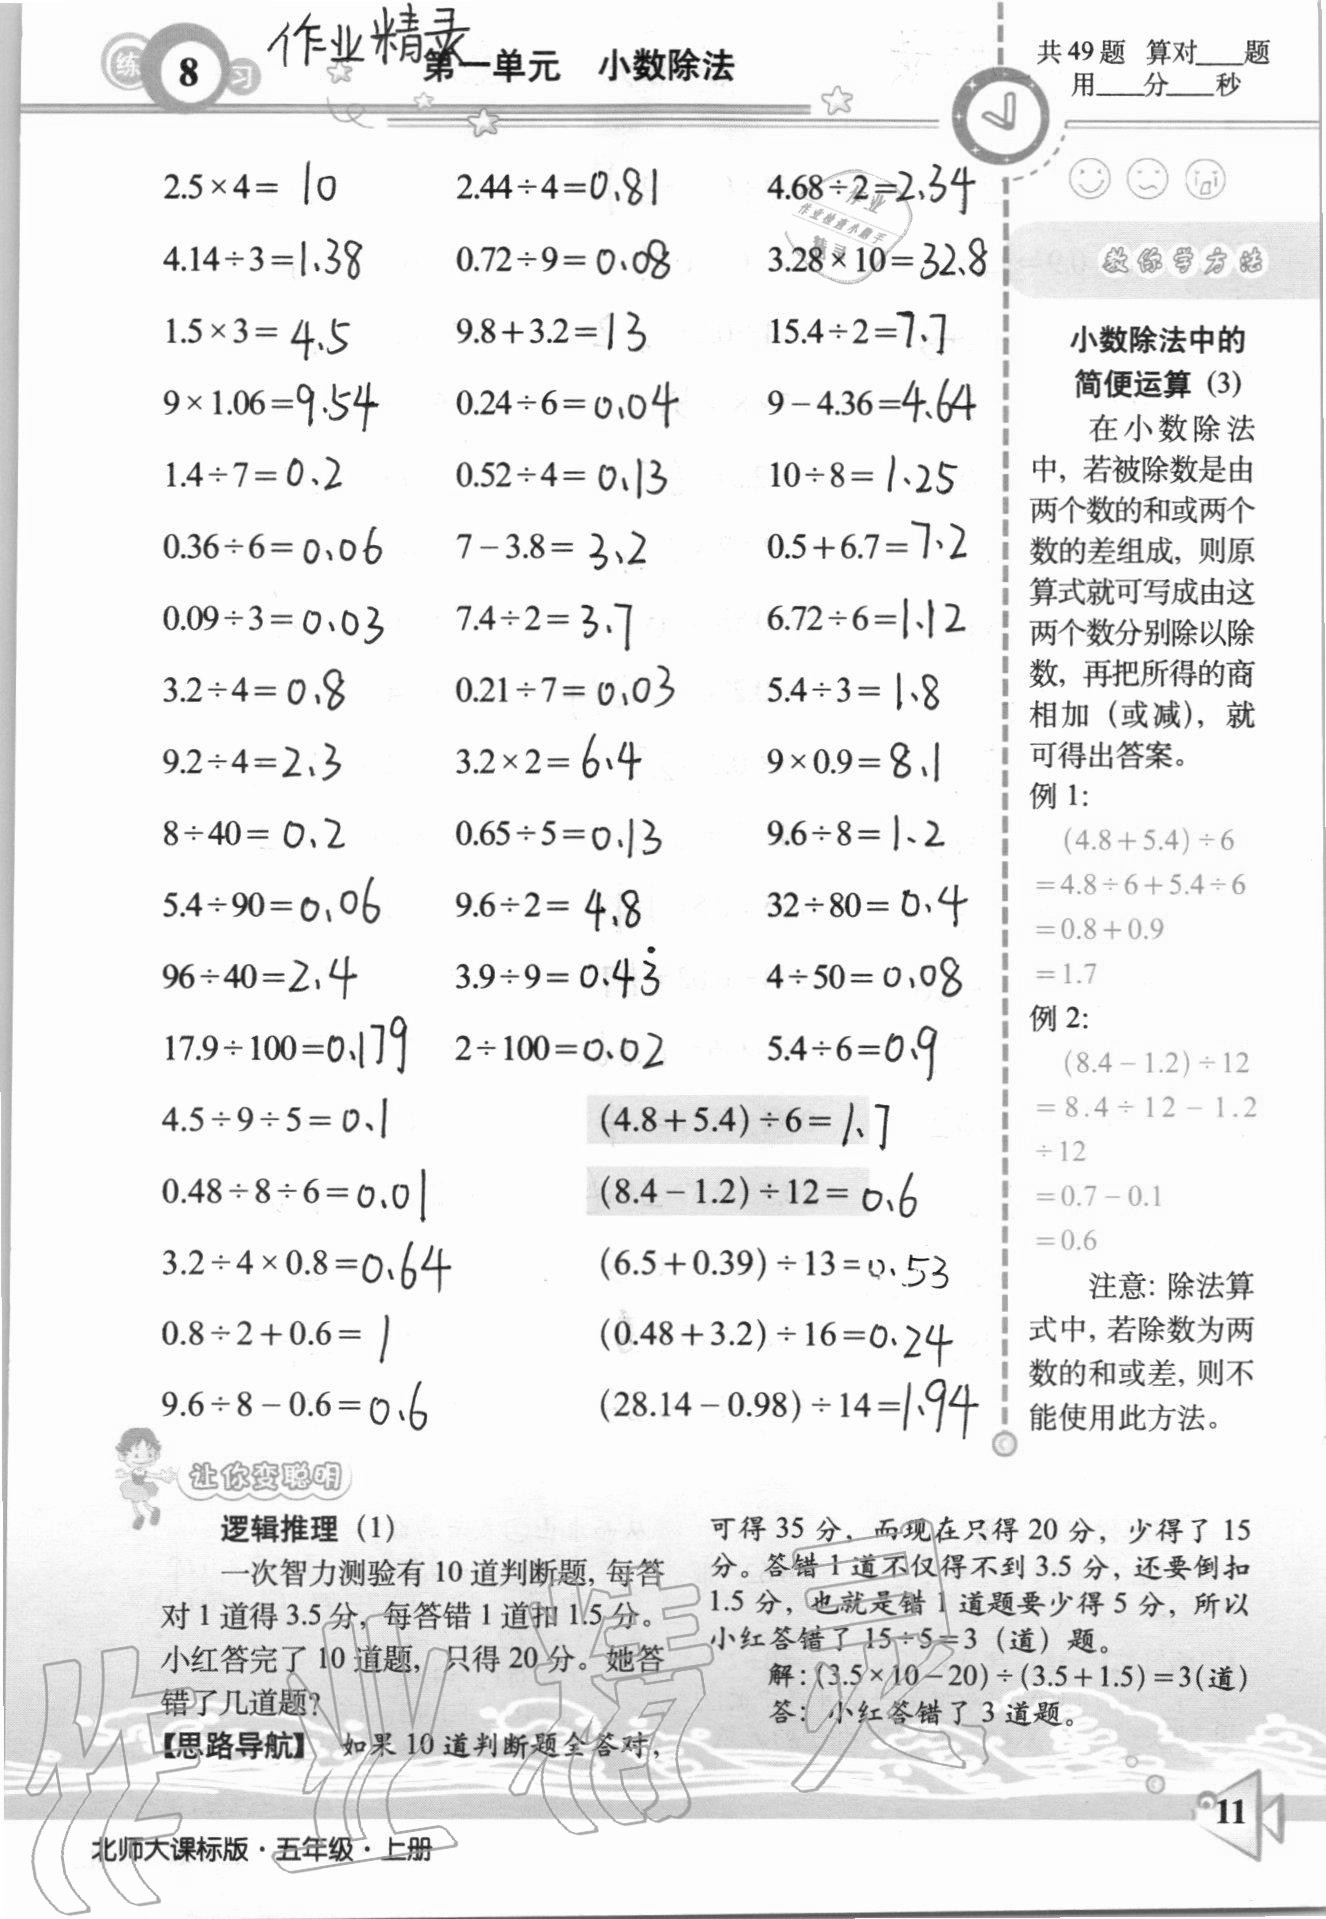 练 8 习 作业精录 第一单元 小数除法
共49题 算对____题
用____分____秒
2.5×4= 10 2.44÷4=0.81 4.68÷2=2.34
4.14÷3=1.38 0.72÷9=0.08 3.28×10=32.8
1.5×3=4.5 9.8+3.2=13 15.4÷2=7.7
9×1.06=9.54 0.24÷6=0.04 9-4.36=4.64
1.4÷7=0.2 0.52÷4=0.13 10÷8=1.25
0.36÷6=0.06 7-3.8=3.2 0.5+6.7=7.2
0.09÷3=0.03 7.4÷2=3.7 6.72÷6=1.12
3.2÷4=0.8 0.21÷7=0.03 5.4÷3=1.8
9.2÷4=2.3 3.2×2=6.4 9×0.9=8.1
8÷40=0.2 0.65÷5=0.13 9.6÷8=1.2
5.4÷90=0.06 9.6÷2=4.8 32÷80=0.4
96÷40=2.4 3.9÷9=0.43̇ 4÷50=0.08
17.9÷100=0.179 2÷100=0.02 5.4÷6=0.9
4.5÷9÷5=0.1 (4.8+5.4)÷6=1.7
0.48÷8÷6=0.01 (8.4-1.2)÷12=0.6
3.2÷4×0.8=0.64 (6.5+0.39)÷13=0.53
0.8÷2+0.6=1 (0.48+3.2)÷16=0.24
9.6÷8-0.6=0.6 (28.14-0.98)÷14=1.94
作业
作业检查小助手
精灵
教你学方法
小数除法中的
简便运算(3)
在小数除法
中,若被除数是由
两个数的和或两个
数的差组成,则原
算式就可写成由这
两个数分别除以除
数,再把所得的商
相加(或减),就
可得出答案。
例1:
(4.8+5.4)÷6
=4.8÷6+5.4÷6
=0.8+0.9
=1.7
例2:
(8.4-1.2)÷12
=8.4÷12-1.2
÷12
=0.7-0.1
=0.6
注意:除法算
式中,若除数为两
数的和或差,则不
能使用此方法。
让你变聪明
逻辑推理(1)
一次智力测验有10道判断题,每答
对1道得3.5分,每答错1道扣1.5分。
小红答完了10道题,只得20分。她答
错了几道题?
【思路导航】 如果10道判断题全答对,
可得35分,而现在只得20分,少得了15
分。答错1道不仅得不到3.5分,还要倒扣
1.5分,也就是错1道题要少得5分,所以
小红答错了15÷5=3(道)题。
解:(3.5×10-20)÷(3.5+1.5)=3(道)
答:小红答错了3道题。
作业精灵
11
北师大课标版·五年级·上册